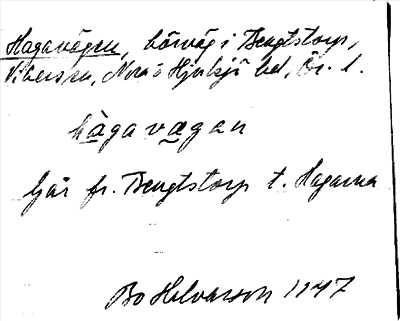 Hagavägen, körväg i Bengtstorp,
Vikers sn, Nora o Hjulsjö bd, Ör. l.
hàgavægan
Går fr. Bengtstorp t. Hagarna
Bo Halvarson 1947